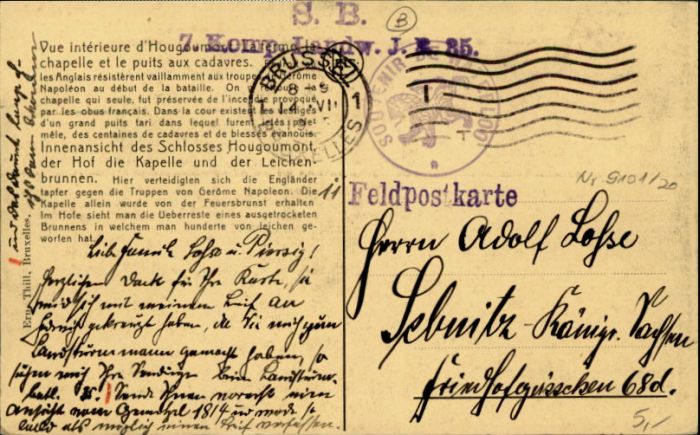 S. B.
7. Komp. Landw. J. R. 35.
B
Vue intérieure d'Hougoumont. La ferme, la
chapelle et le puits aux cadavres.
les Anglais résistèrent vaillamment aux troupes de Gerôme
Napoléon au début de la bataille. On
chapelle qui seule, fut préservée de l'incendie provoqué
par les obus français. Dans la cour existent les vestiges
d'un grand puits tari dans lequel furent jetés pêle-
mêle, des centaines de cadavres et de blessés évanouis.
Innenansicht des Schlosses Hougoumont,
der Hof die Kapelle und der Leichen-
brunnen. Hier verteidigten sich die Engländer
tapfer gegen die Truppen von Gerôme Napoleon. Die
Kapelle allein wurde von der Feuersbrunst erhalten
Im Hofe sieht man die Ueberreste eines ausgetrockneten
Brunnens in welchem man hunderte von leichen ge-
worfen hat.
Ern. Thill, Bruxelles.
BRUSSEL
8-9
14 VII
1
SOUVENIR DE WATERLOO
Feldpostkarte
Nr 9101/20
Herrn Adolf Lohse
Sebnitz - Königr. Sachsen
Friedhofgässchen 68d.
5,-
Liebe Familie Lohse u. Piersig!
Herzlichen Dank für Ihre Karte, sie
wird sich mit meinem Brief an
gekreuzt haben, da Sie mich zum
Landsturmmann gemacht haben, so
Ihre Sendung beim Landsturm-
batl. 35. Sende Ihnen noch eine
Ansicht vom 1814 u. werde so
bald als möglich einen Brief verfassen.